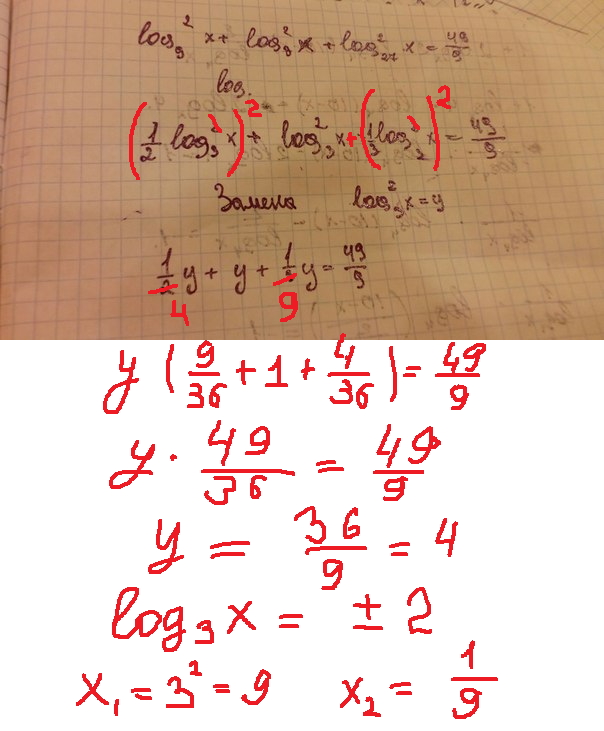 log₉² x + log₃² x + log₂₇² x = 49/9
log.
(1/2 log₃ x)² + log₃² x + (1/3 log₃ x)² = 49/9
Замена log₃² x = y
1/4 y + y + 1/9 y = 49/9
y (9/36 + 1 + 4/36) = 49/9
y · 49/36 = 49/9
y = 36/9 = 4
log₃ x = ± 2
x₁ = 3² = 9 x₂ = 1/9